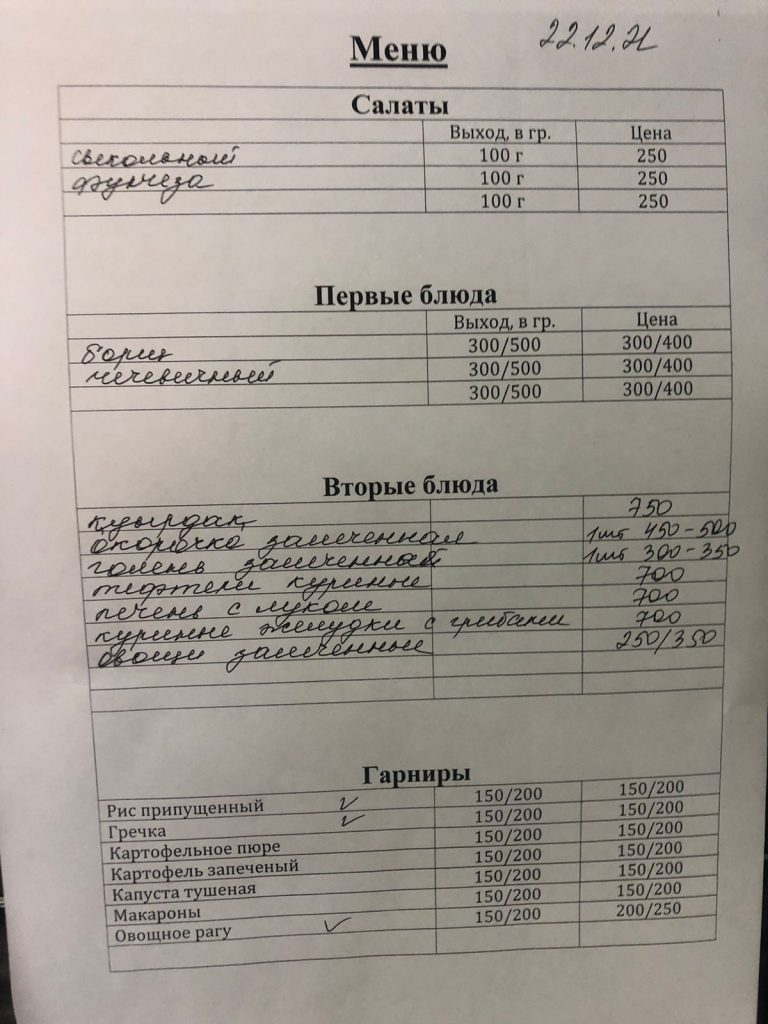 Меню 22.12.21
Салаты
Выход, в гр. Цена
свекольный 100 г 250
фунчеза 100 г 250
100 г 250
Первые блюда
Выход, в гр. Цена
борщ 300/500 300/400
чечевичный 300/500 300/400
300/500 300/400
Вторые блюда
куырдак 750
окорочка запеченная 1шт 450-500
голень запеченная 1шт 300-350
тефтели куриные 700
печень с луком 700
куринные желудки с грибами 700
овощи запеченные 250/350
Гарниры
Рис припущенный ✓ 150/200 150/200
Гречка ✓ 150/200 150/200
Картофельное пюре 150/200 150/200
Картофель запеченый 150/200 150/200
Капуста тушеная 150/200 150/200
Макароны 150/200 150/200
Овощное рагу ✓ 150/200 200/250